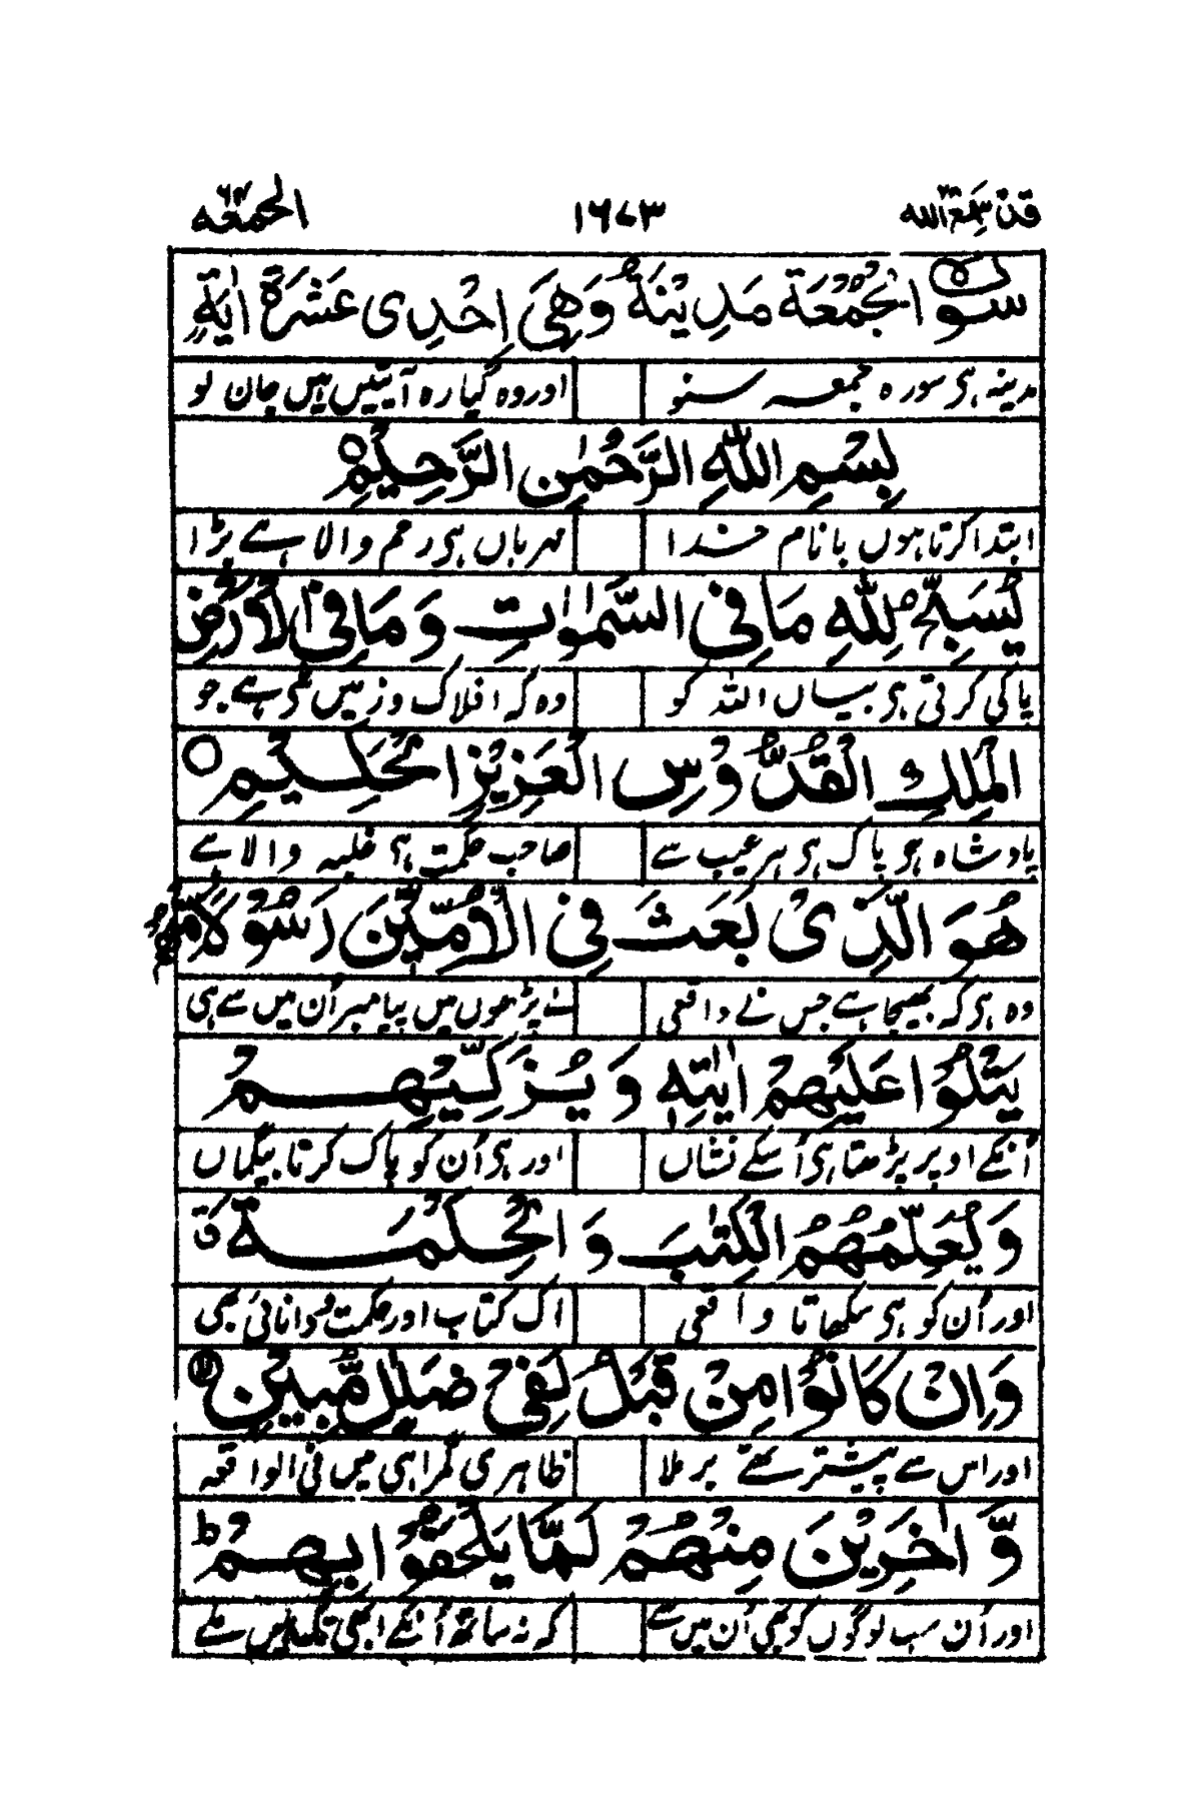 قد سمع الله ۲۸ ۱۶۷۳ الجمعه ۶۲
سورة الجُمُعَة مَدِيْنَةٌ وَهِيَ اِحْدٰى عَشْرَةَ اٰيَةً
مدینہ ہی سورہ جمعہ سنو اور وہ گیارہ آیتیں ہیں جان لو
بِسْمِ اللّٰهِ الرَّحْمٰنِ الرَّحِيْمِ ○
ابتدا کرتا ہوں با نام خدا مہرباں ہی رحم والا ہے بڑا
يُسَبِّحُ لِلّٰهِ مَا فِى السَّمٰوٰتِ وَمَا فِى الْاَرْضِ
پاکی کرتی ہی بیاں اللہ کو وہ کہ افلاک و زمیں میں ہے جو
الْمَلِكِ الْقُدُّوْسِ الْعَزِيْزِ الْحَكِيْمِ ○
پادشاہ ہی پاک ہی ہر عیب سے صاحب حکمت ہی غلبہ والا ہے
هُوَ الَّذِىْ بَعَثَ فِى الْاُمِّيّٖنَ رَسُوْلًا مِّنْهُمْ
وہ ہی کہ بھیجا ہے جس نے واقعی پڑھوں میں پیامبر اُن میں سے ہی
يَتْلُوْا عَلَيْهِمْ اٰيٰتِهٖ وَيُزَكِّيْهِمْ
اُنکے اوپر پڑھتا ہی اُسکے نشاں اور ہی اُن کو پاک کرتا بیگماں
وَيُعَلِّمُهُمُ الْكِتٰبَ وَالْحِكْمَةَ ق
اور اُن کو ہی سکھاتا واقعی اک کتاب اور حکمت و دانائی بھی
وَاِنْ كَانُوْا مِنْ قَبْلُ لَفِىْ ضَلٰلٍ مُّبِيْنٍ
اور اس سے پیشتر تھے برملا ظاہری گمراہی میں فی الواقعہ
وَّاٰخَرِيْنَ مِنْهُمْ لَمَّا يَلْحَقُوْا بِهِمْ ط
اور اُن سب لوگوں کو بھی اُن میں سے کہ نہ ساتھ اُنکے ابھی تک ہیں ملے